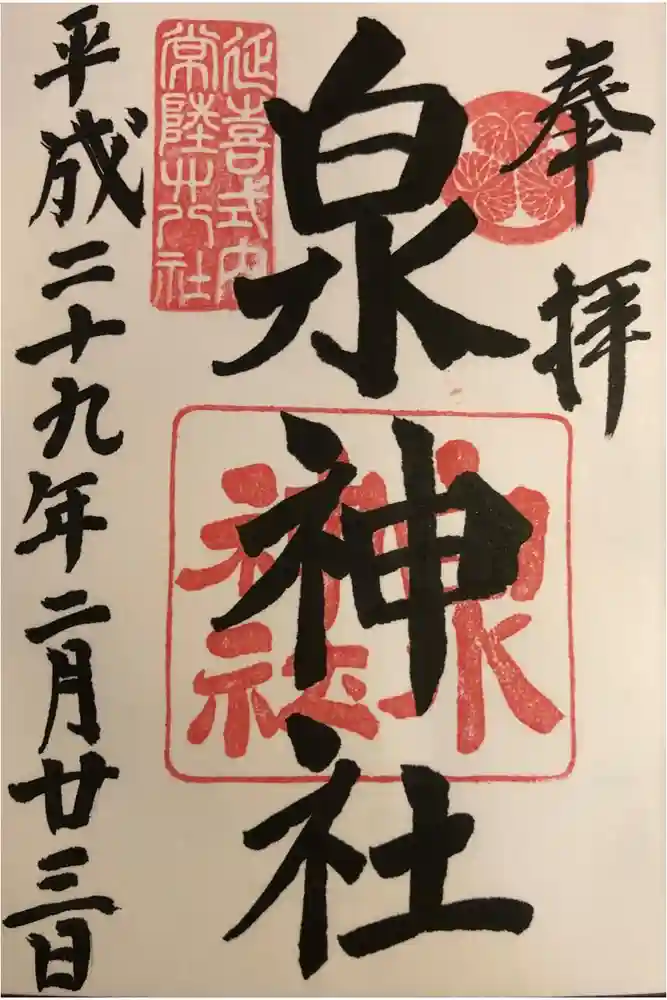 奉拝
泉神社
延喜式内
常陸廿八社
泉
神社
平成二十九年二月廿三日